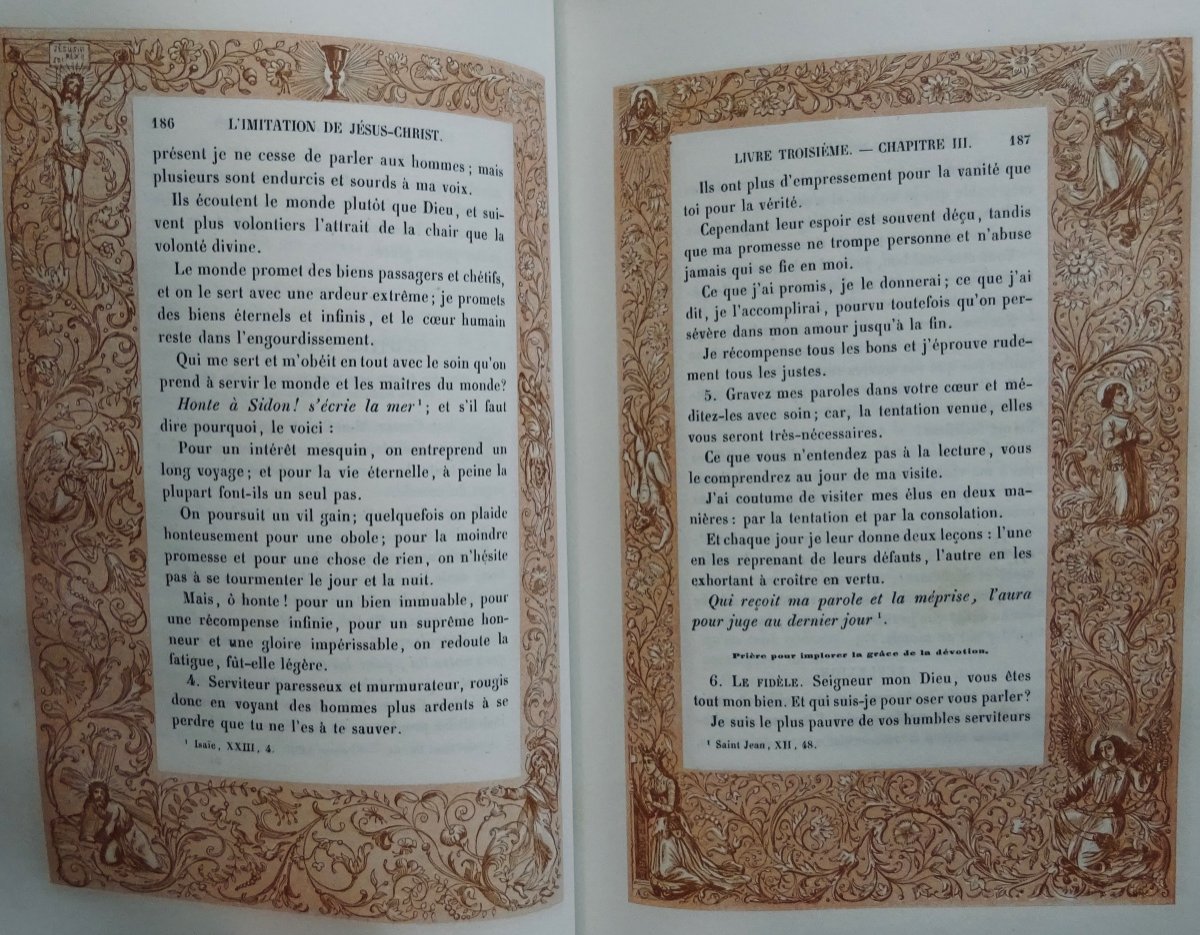 JÉSUS
186 L'IMITATION DE JÉSUS-CHRIST.
présent je ne cesse de parler aux hommes; mais
plusieurs sont endurcis et sourds à ma voix.
Ils écoutent le monde plutôt que Dieu, et sui-
vent plus volontiers l'attrait de la chair que la
volonté divine.
Le monde promet des biens passagers et chétifs,
et on le sert avec une ardeur extrême; je promets
des biens éternels et infinis, et le cœur humain
reste dans l'engourdissement.
Qui me sert et m'obéit en tout avec le soin qu'on
prend à servir le monde et les maîtres du monde?
Honte à Sidon! s'écrie la mer¹; et s'il faut
dire pourquoi, le voici :
Pour un intérêt mesquin, on entreprend un
long voyage; et pour la vie éternelle, à peine la
plupart font-ils un seul pas.
On poursuit un vil gain; quelquefois on plaide
honteusement pour une obole; pour la moindre
promesse et pour une chose de rien, on n'hésite
pas à se tourmenter le jour et la nuit.
Mais, ô honte! pour un bien immuable, pour
une récompense infinie, pour un suprême hon-
neur et une gloire impérissable, on redoute la
fatigue, fût-elle légère.
4. Serviteur paresseux et murmurateur, rougis
donc en voyant des hommes plus ardents à se
perdre que tu ne l'es à te sauver.
¹ Isaïe, XXIII, 4.
LIVRE TROISIÈME. — CHAPITRE III. 187
Ils ont plus d'empressement pour la vanité que
toi pour la vérité.
Cependant leur espoir est souvent déçu, tandis
que ma promesse ne trompe personne et n'abuse
jamais qui se fie en moi.
Ce que j'ai promis, je le donnerai; ce que j'ai
dit, je l'accomplirai, pourvu toutefois qu'on per-
sévère dans mon amour jusqu'à la fin.
Je récompense tous les bons et j'éprouve rude-
ment tous les justes.
5. Gravez mes paroles dans votre cœur et mé-
ditez-les avec soin; car, la tentation venue, elles
vous seront très-nécessaires.
Ce que vous n'entendez pas à la lecture, vous
le comprendrez au jour de ma visite.
J'ai coutume de visiter mes élus en deux ma-
nières : par la tentation et par la consolation.
Et chaque jour je leur donne deux leçons : l'une
en les reprenant de leurs défauts, l'autre en les
exhortant à croître en vertu.
Qui reçoit ma parole et la méprise, l'aura
pour juge au dernier jour¹.
Prière pour implorer la grâce de la dévotion.
6. LE FIDÈLE. Seigneur mon Dieu, vous êtes
tout mon bien. Et qui suis-je pour oser vous parler?
Je suis le plus pauvre de vos humbles serviteurs
¹ Saint Jean, XII, 48.